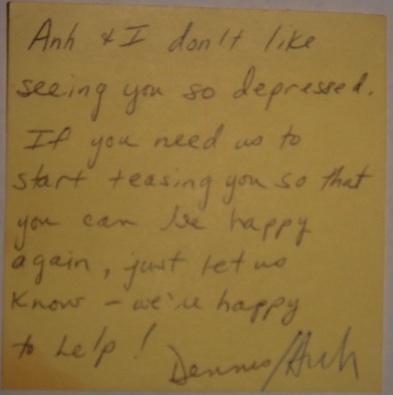 Anh & I don't like
seeing you so depressed.
If you need us to
start teasing you so that
you can be happy
again, just let us
know – we're happy
to help!
Dennis/Anh